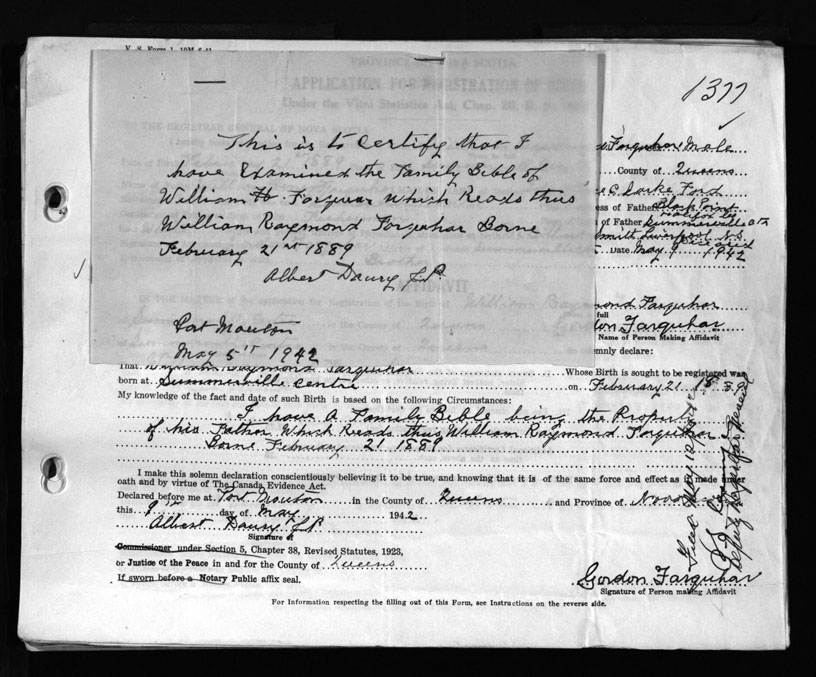 V. S. Form 1. 10M
1377
PROVINCE OF NOVA SCOTIA
APPLICATION FOR REGISTRATION OF
Under the Vital Statistics Act, Chap.
This is to Certify that I
have Examined the Family Bible of
William H Farquhar Which Reads thus
William Raymond Farquhar Borne
February 21st 1889
Albert Daury J.P.
Port Mouton
May 5th 1942
Farquhar Male
County of Queens
Clarke Ford
ess of Father Black Point
of Father
Smith Liverpool N.S.
Date May 9 1942
AFFIDAVIT
mond Farquhar
full
Gordon Farquhar
Name of Person Making Affidavit
emnly declare:
That William Raymond Farquhar Whose Birth is sought to be registered was
born at Summerville Centre on February 21 1889
My knowledge of the fact and date of such Birth is based on the following Circumstances:
I have A Family Bible being the Property
of his Father Which Reads thus William Raymond Farquhar
Borne February 21 1889
I make this solemn declaration conscientiously believing it to be true, and knowing that it is of the same force and effect as if made under
oath and by virtue of The Canada Evidence Act.
Declared before me at Port Mouton in the County of Queens and Province of Nova
this 9th day of May 1942
Albert Daury J.P.
Signature of
Commissioner under Section 5, Chapter 38, Revised Statutes, 1923,
or Justice of the Peace in and for the County of Queens
If sworn before a Notary Public affix seal.
Gordon Farquhar
Signature of Person making Affidavit
For Information respecting the filling out of this Form, see Instructions on the reverse side.
Deputy Registrar General